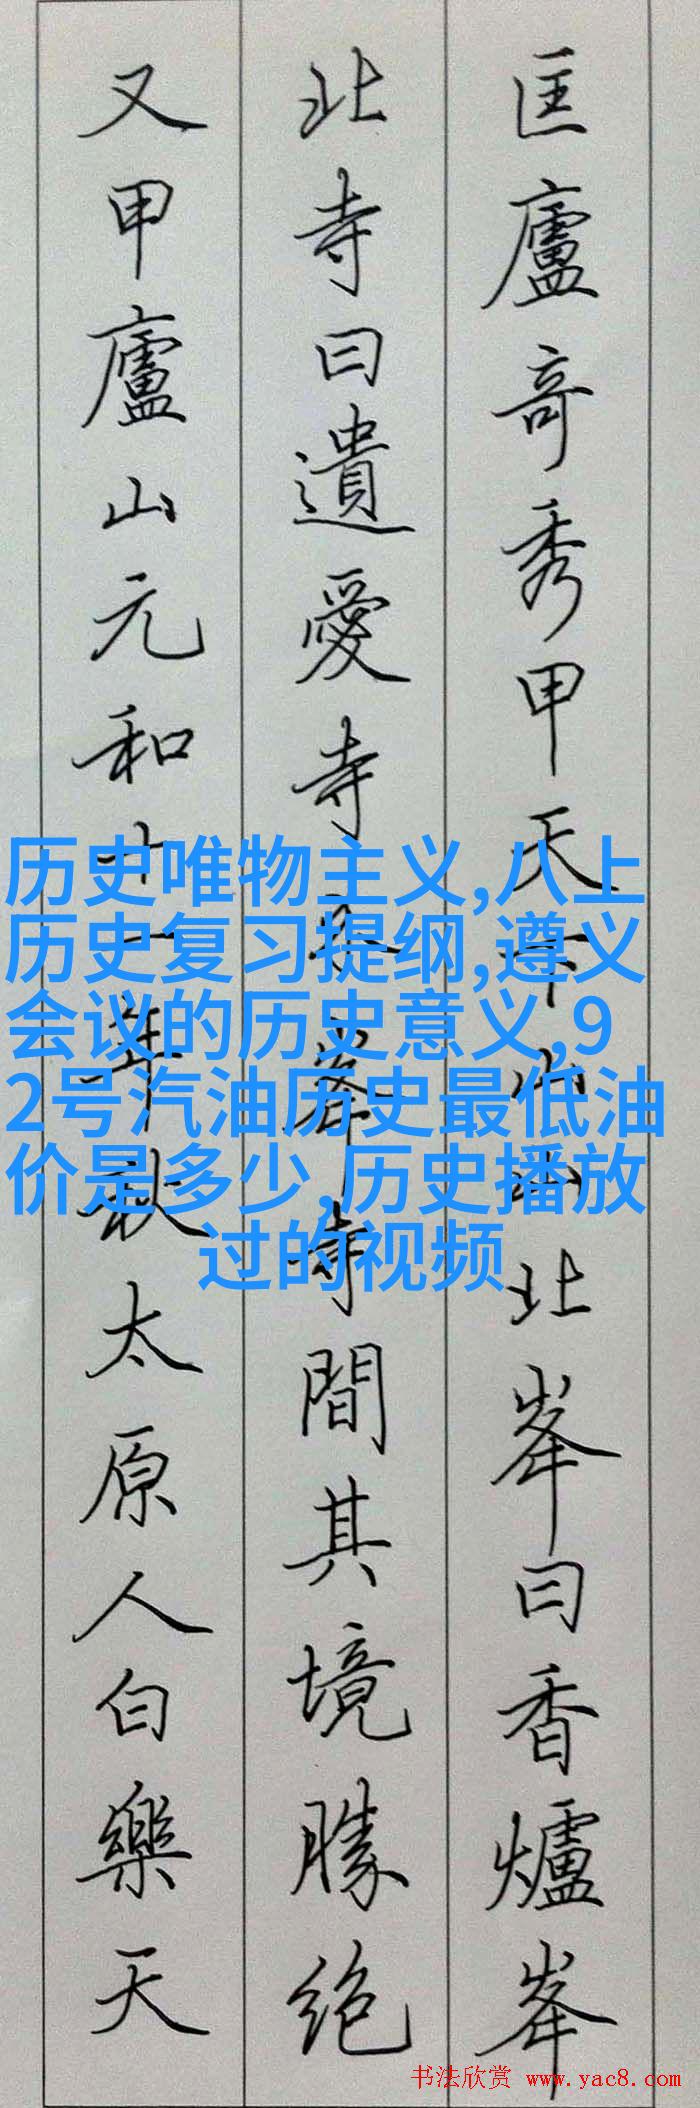 匡廬竒秀甲天下山山北峯曰香爐峯
北寺曰遺愛寺峯寺間其境勝绝
又甲廬山元和十一年秋太原人白樂天
历史唯物主义,八上
历史复习提纲,遵义
会议的历史意义,9
2号汽油历史最低油
价是多少,历史播放
过的视频
书法欣赏 www.yac8.com